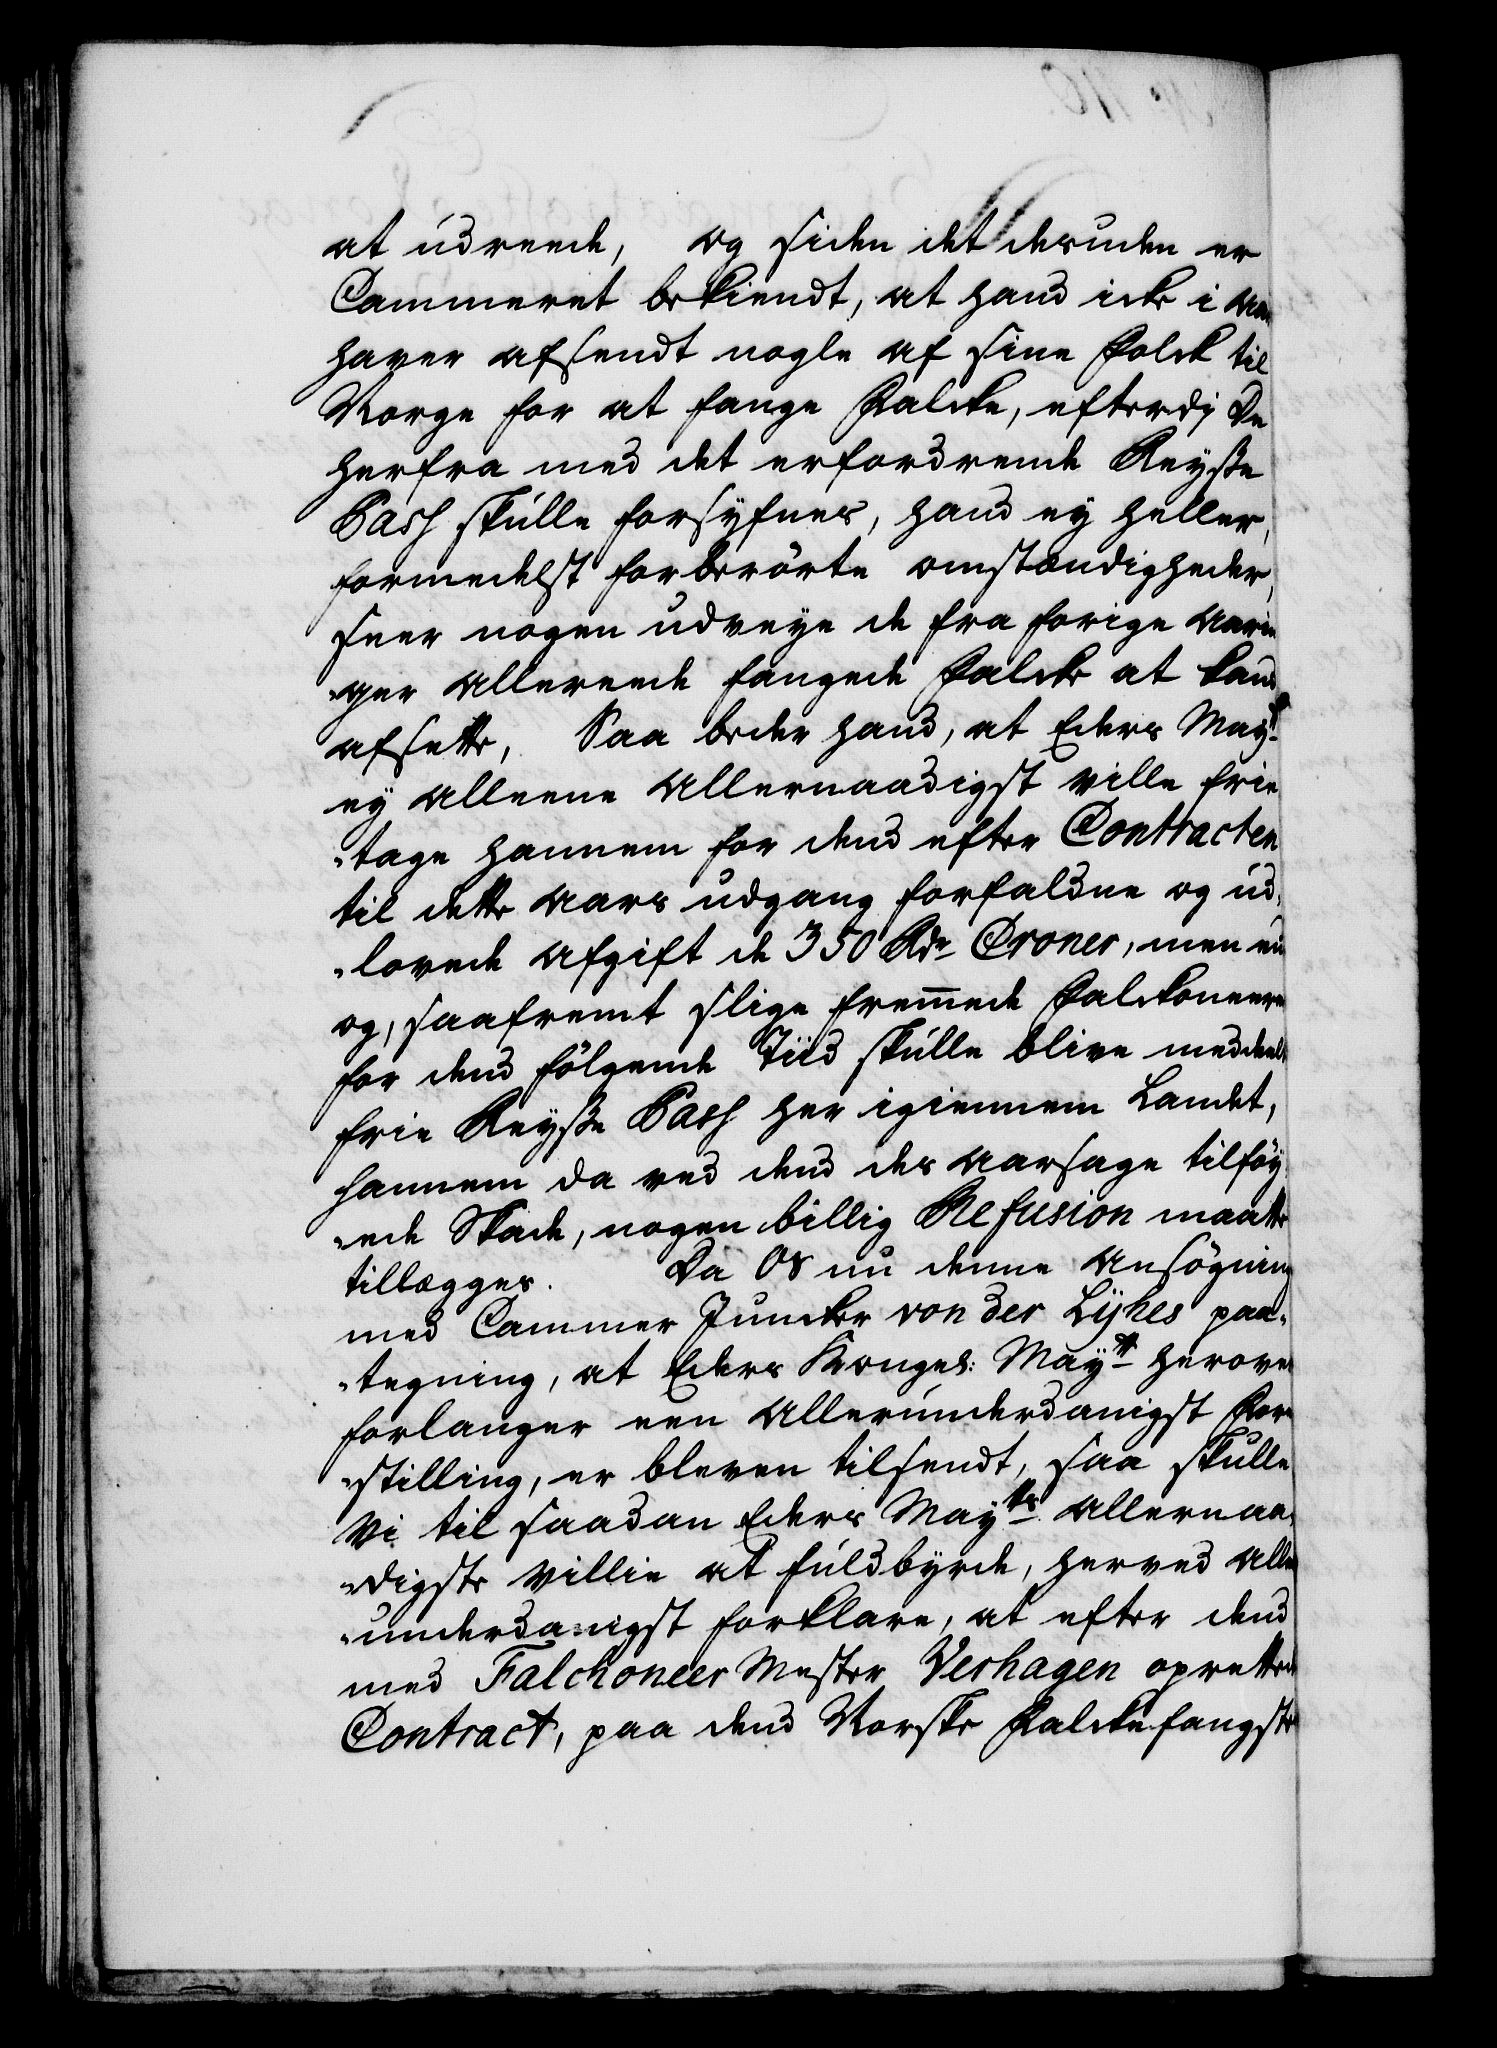 at udreede, og siden det desuden er
Cammeret bekiendt, at hand icke i Aar
haver afsendt nogle af sine Folck til
Norge for at fange Falcke, efterdj De
herfra med det erfordrende Reysze
Pass skulle forsyfnes, hand ey heller,
formedelst forberörte omstændigheder,
seer nogen udveye de fra forige Aarin
-ger allereede fangede Falcke at kand
afsette, Saa beder hand, at Eders Mayt
ey alleene Allernaadigst ville frie
-tage hannem for dend efter Contracten
til dette Aars udgang forfaldne og ud-
-lovede Afgift de 350 Rdr Croner, men end
og, saafremt slige fremede Falckoneere
for dend fölgende Tiid skulle blive meddeelt
frie Reysze Pass her igiennem Landet,
hannem da ved dend des aarsage tilföy
-ede Skade, nogen billig Refusion maatte
tillægges. Da Os nu denne Ansögning
med Cammer Juncker von der Lÿhes paa-
-tegning, at Eders Kongel: Maytt herover
forlanger een Allerunderdanigst Fore
-stilling, er bleven tilsendt, saa skulle
Vi til saadan Eders Maytts Allernaa-
-digste Villie at fuldbyrde, herved Aller
-underdanigst forklare, at efter dend
med Falckoneer Mester Verhagen oprettede
Contract, paa dend Norske Falckefangst